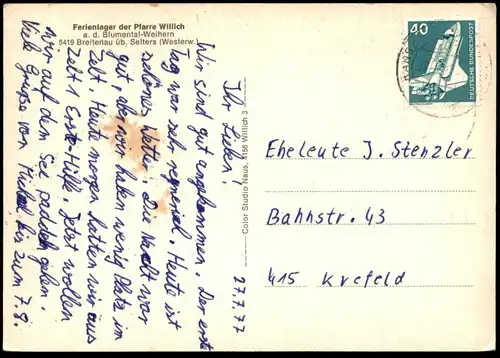 Ferienlager der Pfarre Willich
a. d. Blumental-Weihern
5419 Breitenau üb. Selters (Westerw.
27.7.77
Ihr Lieben!
Wir sind gut angekommen. Der erste
Tag war sehr regnerisch. Heute ist
schönes Wetter. Die Nacht war
gut, aber wir haben wenig Platz im
Zelt. Heute morgen hatten wir aus
Zelt 1 Erste-Hilfe. Jetzt wollen
wir auf dem See paddeln gehen.
Viele Grüsse von Michael bis zum 7.8.
Color Studio Naus, 4156 Willich 3
40
DEUTSCHE BUNDESPOST
Eheleute J. Stenzler
Bahnstr. 43
415 Krefeld